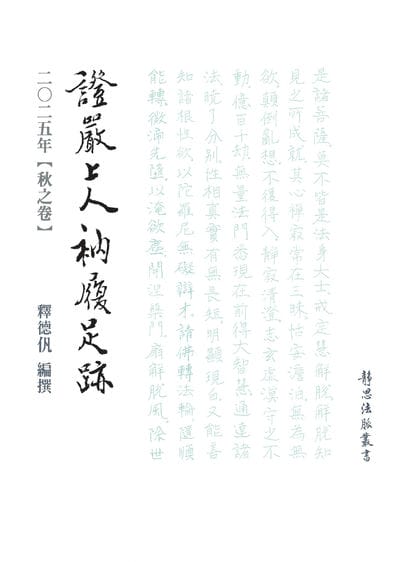 靜思法脈叢書
是諸菩薩,莫不皆是法身大士,戒定慧解脫,解脫知
見之所成就。其心禪寂,常在三昧,恬安澹泊,無為無
欲,顛倒亂想,不復得入。靜寂清澄,志玄虛漠,守之不
動,億百千劫,無量法門,悉現在前,得大智慧,通達諸
法,曉了分別,性相真實,有無長短,明顯現白。又能善
知諸根性欲,以陀羅尼無礙辯才,諸佛轉法輪,隨順
能轉。微渧先墮,以淹欲塵,開涅槃門,扇解脫風,除世
證嚴上人衲履足跡
二○二五年【秋之卷】 釋德㐽 編撰